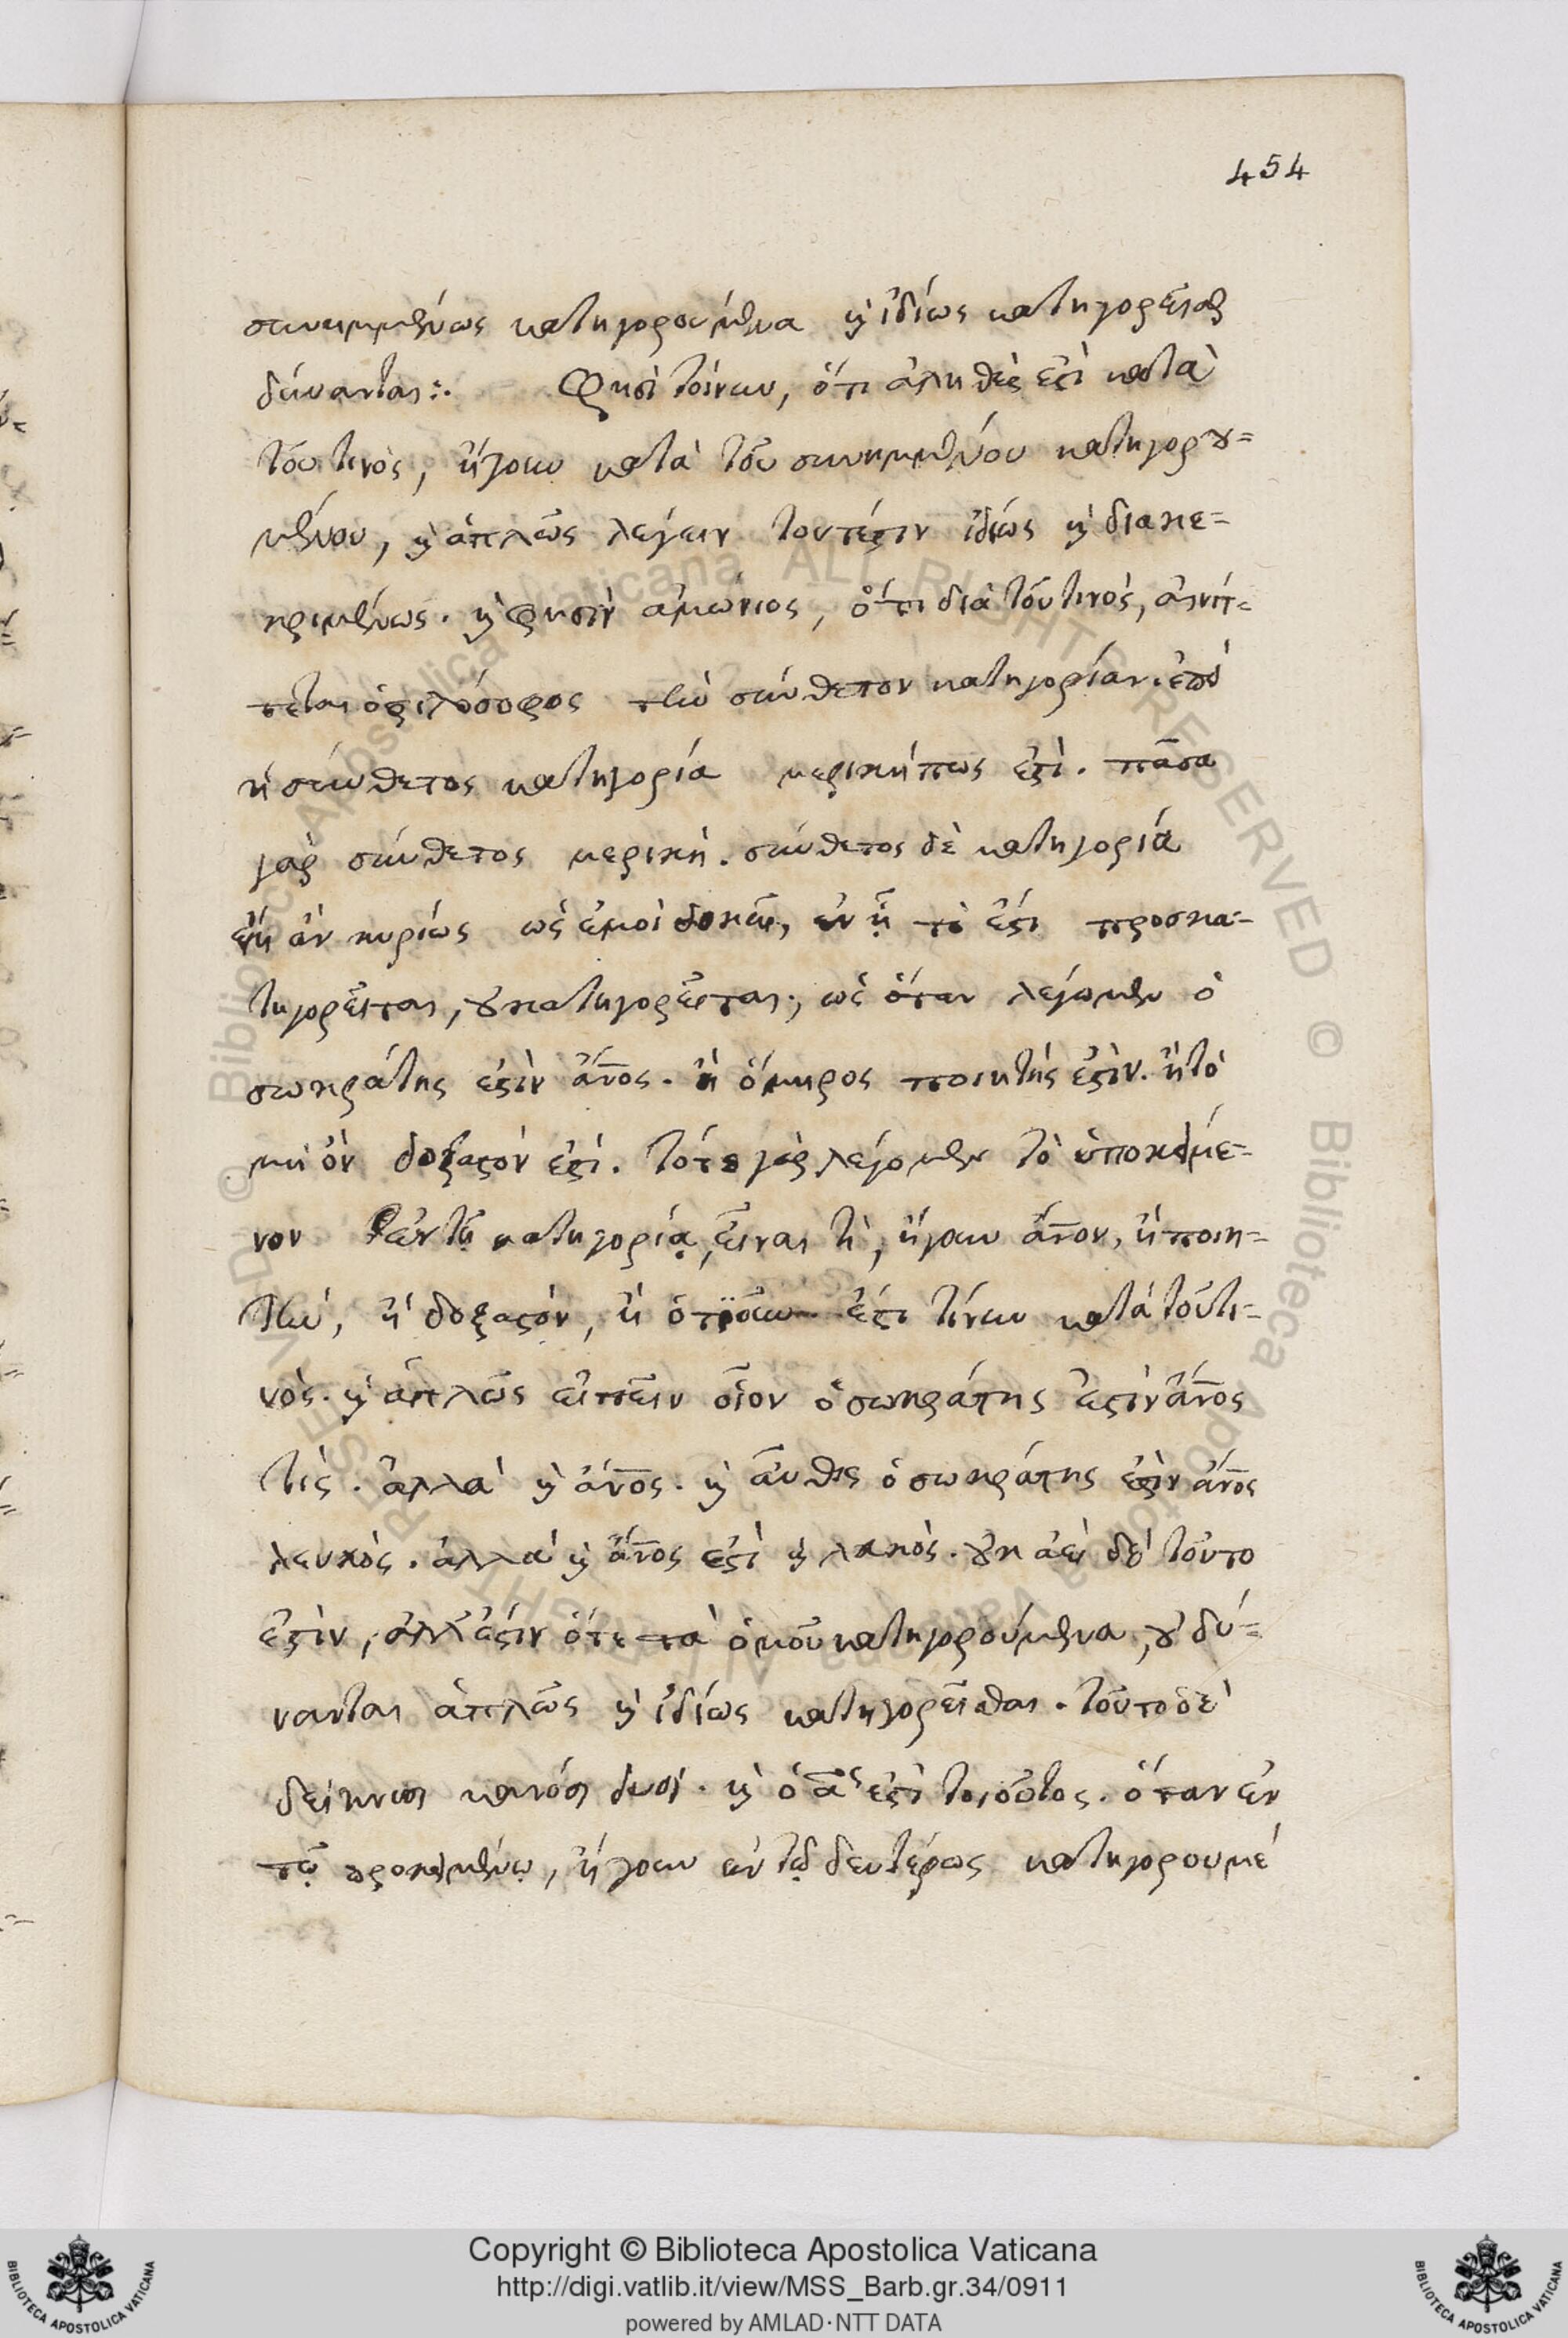 454
συνημμένως κατηγορούμενα καὶ ἰδίως κατηγορεῖσθαι
δύνανται:. Φησὶ τοίνυν, ὅτι ἀληθές ἐστι κατὰ
τοῦ τινὸς, ἤγουν κατὰ τοῦ συνημμένου κατηγορου=
μένου, καὶ ἁπλῶς λέγειν τουτέστιν ἰδίως καὶ διακε=
κριμένως. καὶ φησὶν ἀμώνιος, ὅτι διὰ τοῦ τινὸς, αἰνίτ=
τεται ὁ φιλόσοφος τὴν σύνθετον κατηγορίαν. ἐπεὶ
ἡ σύνθετος κατηγορία μερική πως ἐστί. πᾶσα
γὰρ σύνθετος μερική. σύνθετος δὲ κατηγορία
εἴη ἂν κυρίως ὡς ἐμοὶ δοκεῖ, ἐν ᾗ τὸ ἔστι προσκα=
τηγορεῖται, οὐ κατηγορεῖται, ὡς ὅταν λέγωμεν ὁ
σωκράτης ἐστὶν ἄνος. ἢ ὅμηρος ποιητής ἐστιν. ἢ τὸ
μὴ ὂν δοξαστόν ἐστι. τότε γὰρ λέγομεν τὸ ὑποκείμε=
νον ἐν τῇ κατηγορίᾳ, εἶναι τὶ, ἤγουν ἄνον, ἢ ποιη=
τὴν, ἢ δοξαστόν, ἢ ὁτιοῦν ἔστι τοίνυν κατὰ τοῦ τι=
νὸς. καὶ ἁπλῶς εἰπεῖν οἷον ὁ σωκράτης ἐστὶν ἄνος
τὶς. ἀλλὰ καὶ ἄνος. καὶ αὖθις ὁ σωκράτης ἐστὶν ἄνος
λευκὸς. ἀλλὰ καὶ ἄνος ἐστὶ καὶ λευκὸς. οὐκ ἀεὶ δὲ τοῦτο
ἐστὶν, ἀλλ' ἔστιν ὅτε τὰ ὁμοῦ κατηγορούμενα, οὐ δύ=
νανται ἁπλῶς καὶ ἰδίως κατηγορεῖσθαι. τοῦτο δὲ
δείκνυσι κανόσι δυσί. καὶ ὁ αος ἐστὶ τοιοῦτος. ὅταν ἐν
τῷ προκειμένῳ, ἤγουν ἐν τῷ δευτέρως κατηγορουμέ
Copyright © Biblioteca Apostolica Vaticana
http://digi.vatlib.it/view/MSS_Barb.gr.34/0911
powered by AMLAD·NTT DATA